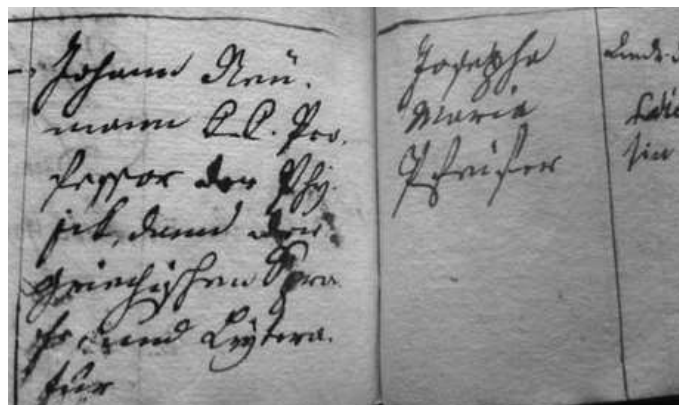 Johann Neü-
mann K.K. Pro-
fessor der Phy-
sik, dann der
griechischen Spra-
che und Lÿtera-
tur
Josepha
Maria